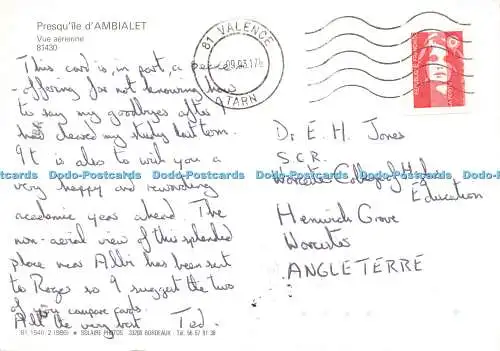 Presqu'île d'AMBIALET
Vue aérienne
81430
This card is, in part, a peace
-offering for not knowing how
to say my goodbyes after I
had cleared my study last term.
It is also to wish you a
very happy and rewarding
academic year ahead. The
non-aerial view of this splendid
place near Albi has been sent
to Roger so I suggest the two
of you compare cards.
All the very best Ted.
81 VALENCE
TARN
Dr E. H. Jones
S.C.R.
Worcester College of Higher
Education
Henwick Grove
Worcester
ANGLETERRE
SOLAIRE PHOTOS 33200 BORDEAUX - Tél. 56 57 91 38
Dodo-Postcards Dodo-Postcards Dodo-Postcards Dodo-Postcards Dodo-Postcards